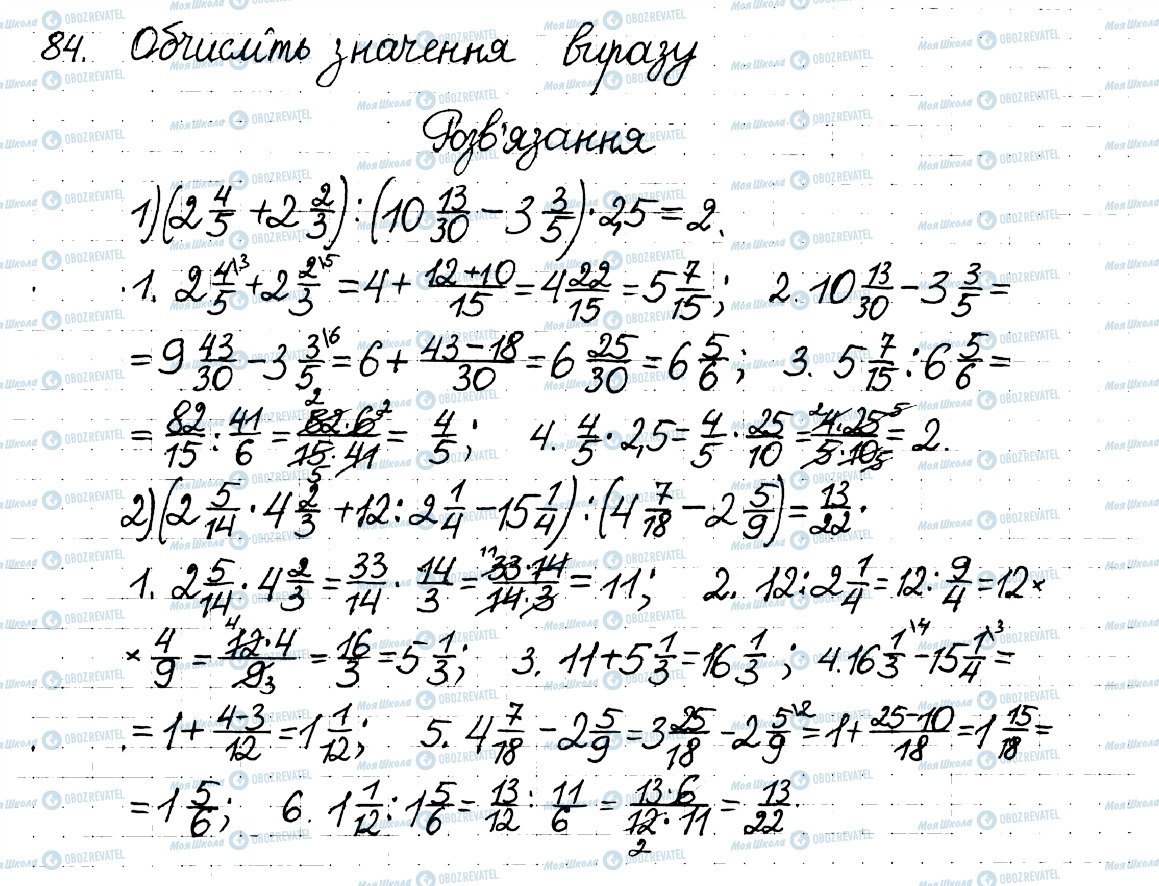 84. Обчисліть значення виразу
Розв'язання
1) (2 4/5 + 2 2/3) : (10 13/30 − 3 3/5) · 2,5 = 2.
1. 2 4/5 \3 + 2 2/3 \5 = 4 + (12+10)/15 = 4 22/15 = 5 7/15; 2. 10 13/30 − 3 3/5 =
= 9 43/30 − 3 3/5 \6 = 6 + (43−18)/30 = 6 25/30 = 6 5/6; 3. 5 7/15 : 6 5/6 =
= 82/15 : 41/6 = (82·6)/(15·41) = 4/5; 4. 4/5 · 2,5 = 4/5 · 25/10 = (4·25)/(5·10) = 2.
2) (2 5/14 · 4 2/3 + 12 : 2 1/4 − 15 1/4) : (4 7/18 − 2 5/9) = 13/22.
1. 2 5/14 · 4 2/3 = 33/14 · 14/3 = (33·14)/(14·3) = 11; 2. 12 : 2 1/4 = 12 : 9/4 = 12 ×
× 4/9 = (12·4)/9 = 16/3 = 5 1/3; 3. 11 + 5 1/3 = 16 1/3; 4. 16 1/3 \4 − 15 1/4 \3 =
= 1 + (4−3)/12 = 1 1/12; 5. 4 7/18 − 2 5/9 = 3 25/18 − 2 5/9 \2 = 1 + (25−10)/18 = 1 15/18 =
= 1 5/6; 6. 1 1/12 : 1 5/6 = 13/12 : 11/6 = (13·6)/(12·11) = 13/22.